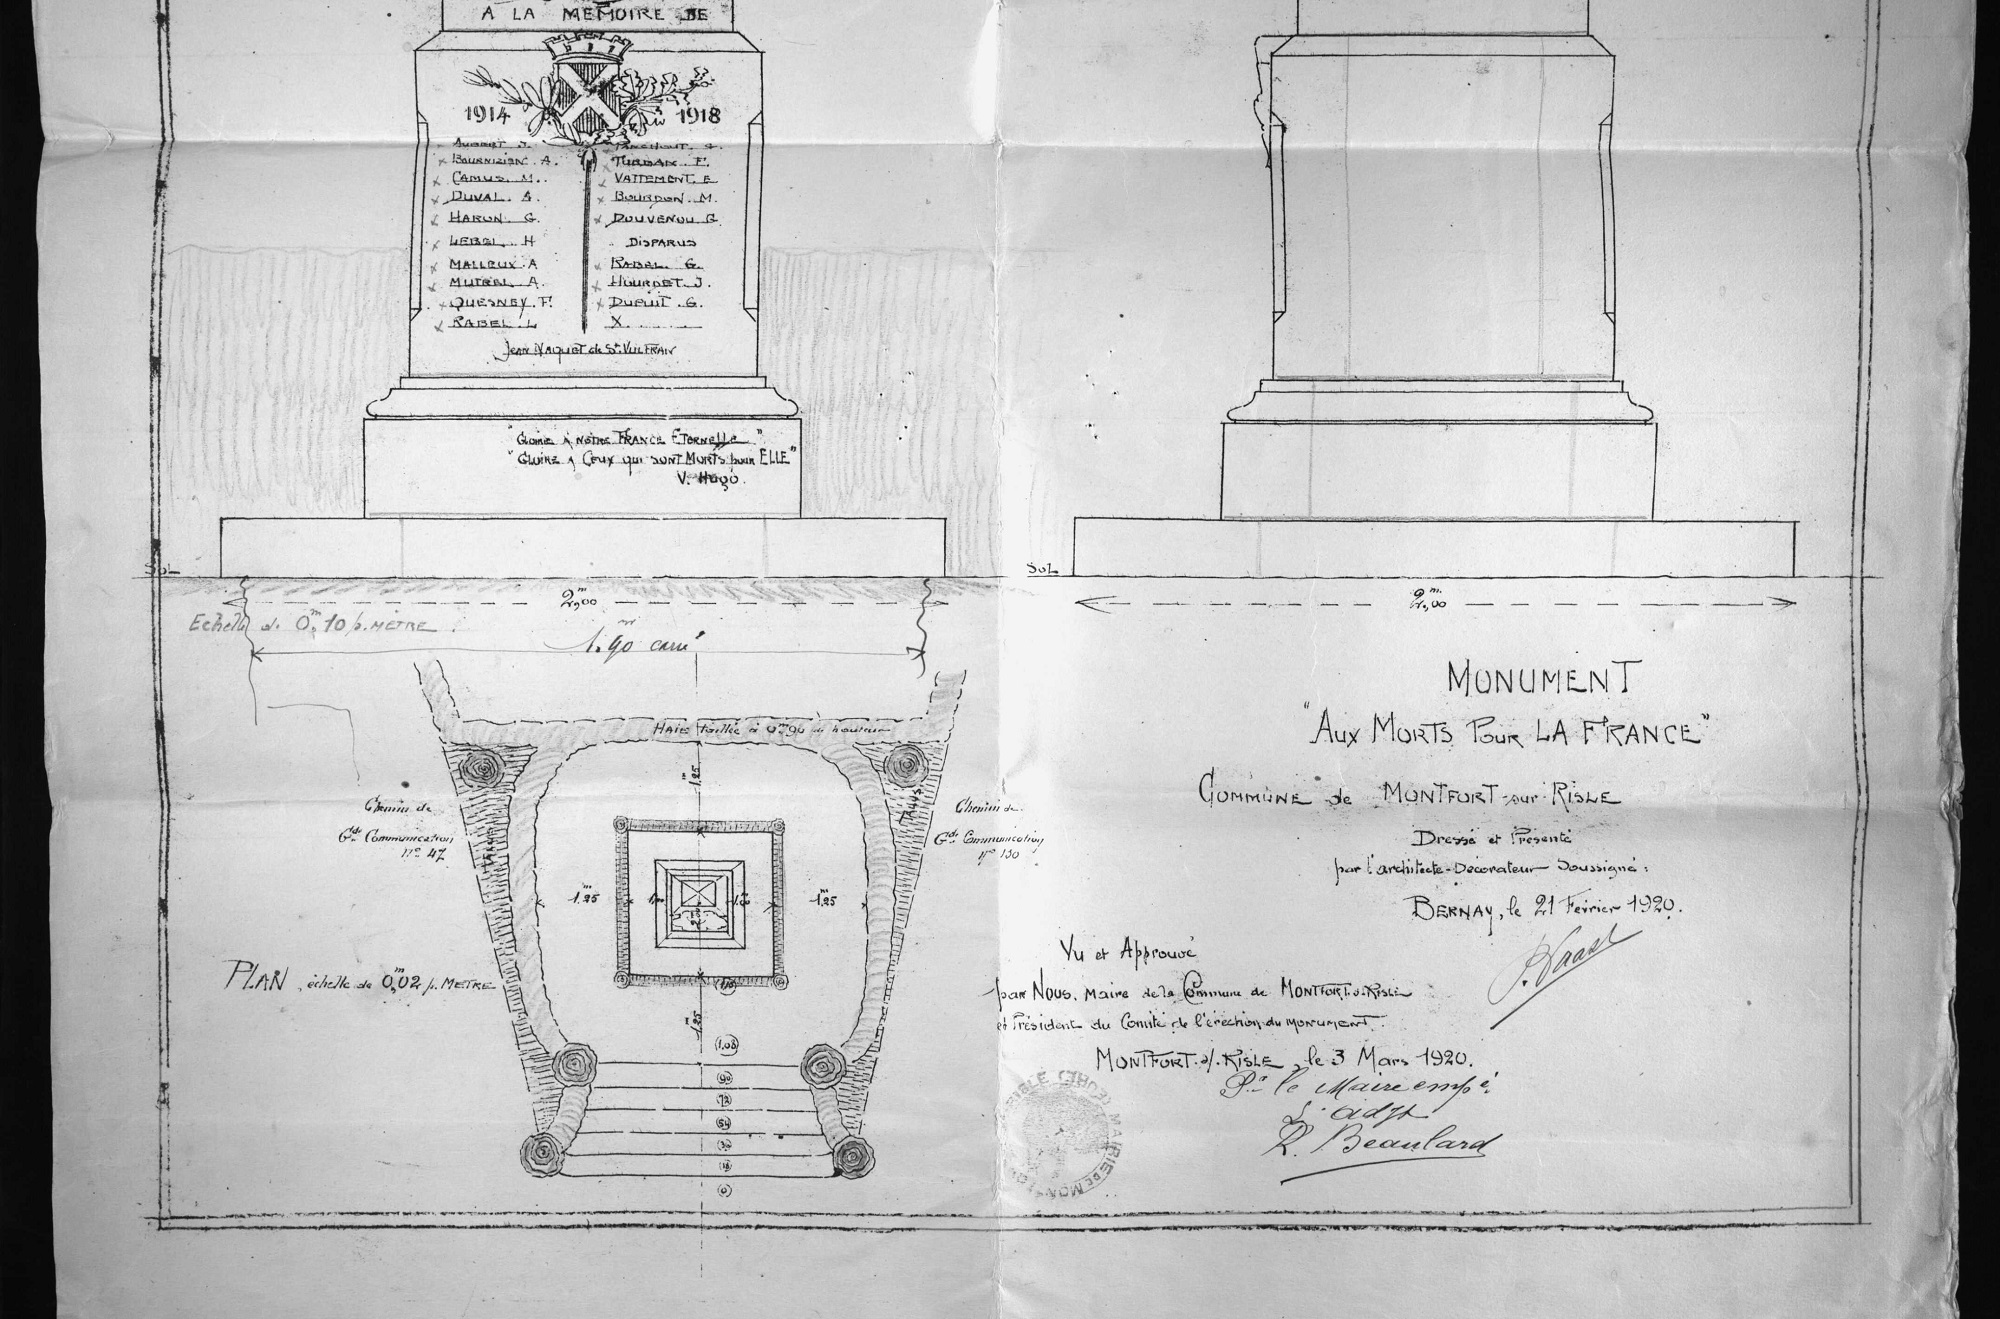 A LA MEMOIRE DE
1914 1918
AUBERT J.
BOURNIZIEN A.
CAMUS. M.
DUVAL. A.
HARON G.
LEBEL H
MALLEUX A
MUTREL A.
QUESNEY. F.
RABEL. L
TURBAN F.
VATTEMENT. E
BOURDON M.
DOUVENOU G
DISPARUS
RABEL. G.
HOURDET. J.
DUPUIT. G.
X.........
Jean NAQUET de St. VULFRAN
"GLOIRE A NOTRE FRANCE ETERNELLE"
"GLOIRE A CEUX QUI SONT MORTS pour ELLE"
V. HUGO.
SOL
2m,00
Echelle de 0m,10 p. METRE.
1m.90 carré
HAIE taillée à 0m90 de hauteur
1m,25
Chemin de
Gde Communication
No 47
TALUS
Chemin de
Gde Communication
No 130
TALUS
1m,25
1,00
2,00
1,00
1m,25
PLAN, échelle de 0m,02 p. METRE
1m,25
(1,08)
(90)
(72)
(54)
(36)
(18)
(0)
SOL
2m,00
MONUMENT
"AUX MORTS POUR LA FRANCE"
COMMUNE de MONTFORT-sur-RISLE
Dressé et Présenté
par l'architecte-Décorateur Soussigné:
BERNAY, le 21 Février 1920.
Vu et Approuvé
par NOUS, Maire de la Commune de MONTFORT.s.RISLE
et Président du Comité de l'érection du MONUMENT.
MONTFORT.s/.RISLE, le 3 Mars 1920.
Pr le Maire empé.
L'adjt
R. Beaulard
MAIRIE DE MONTFORT